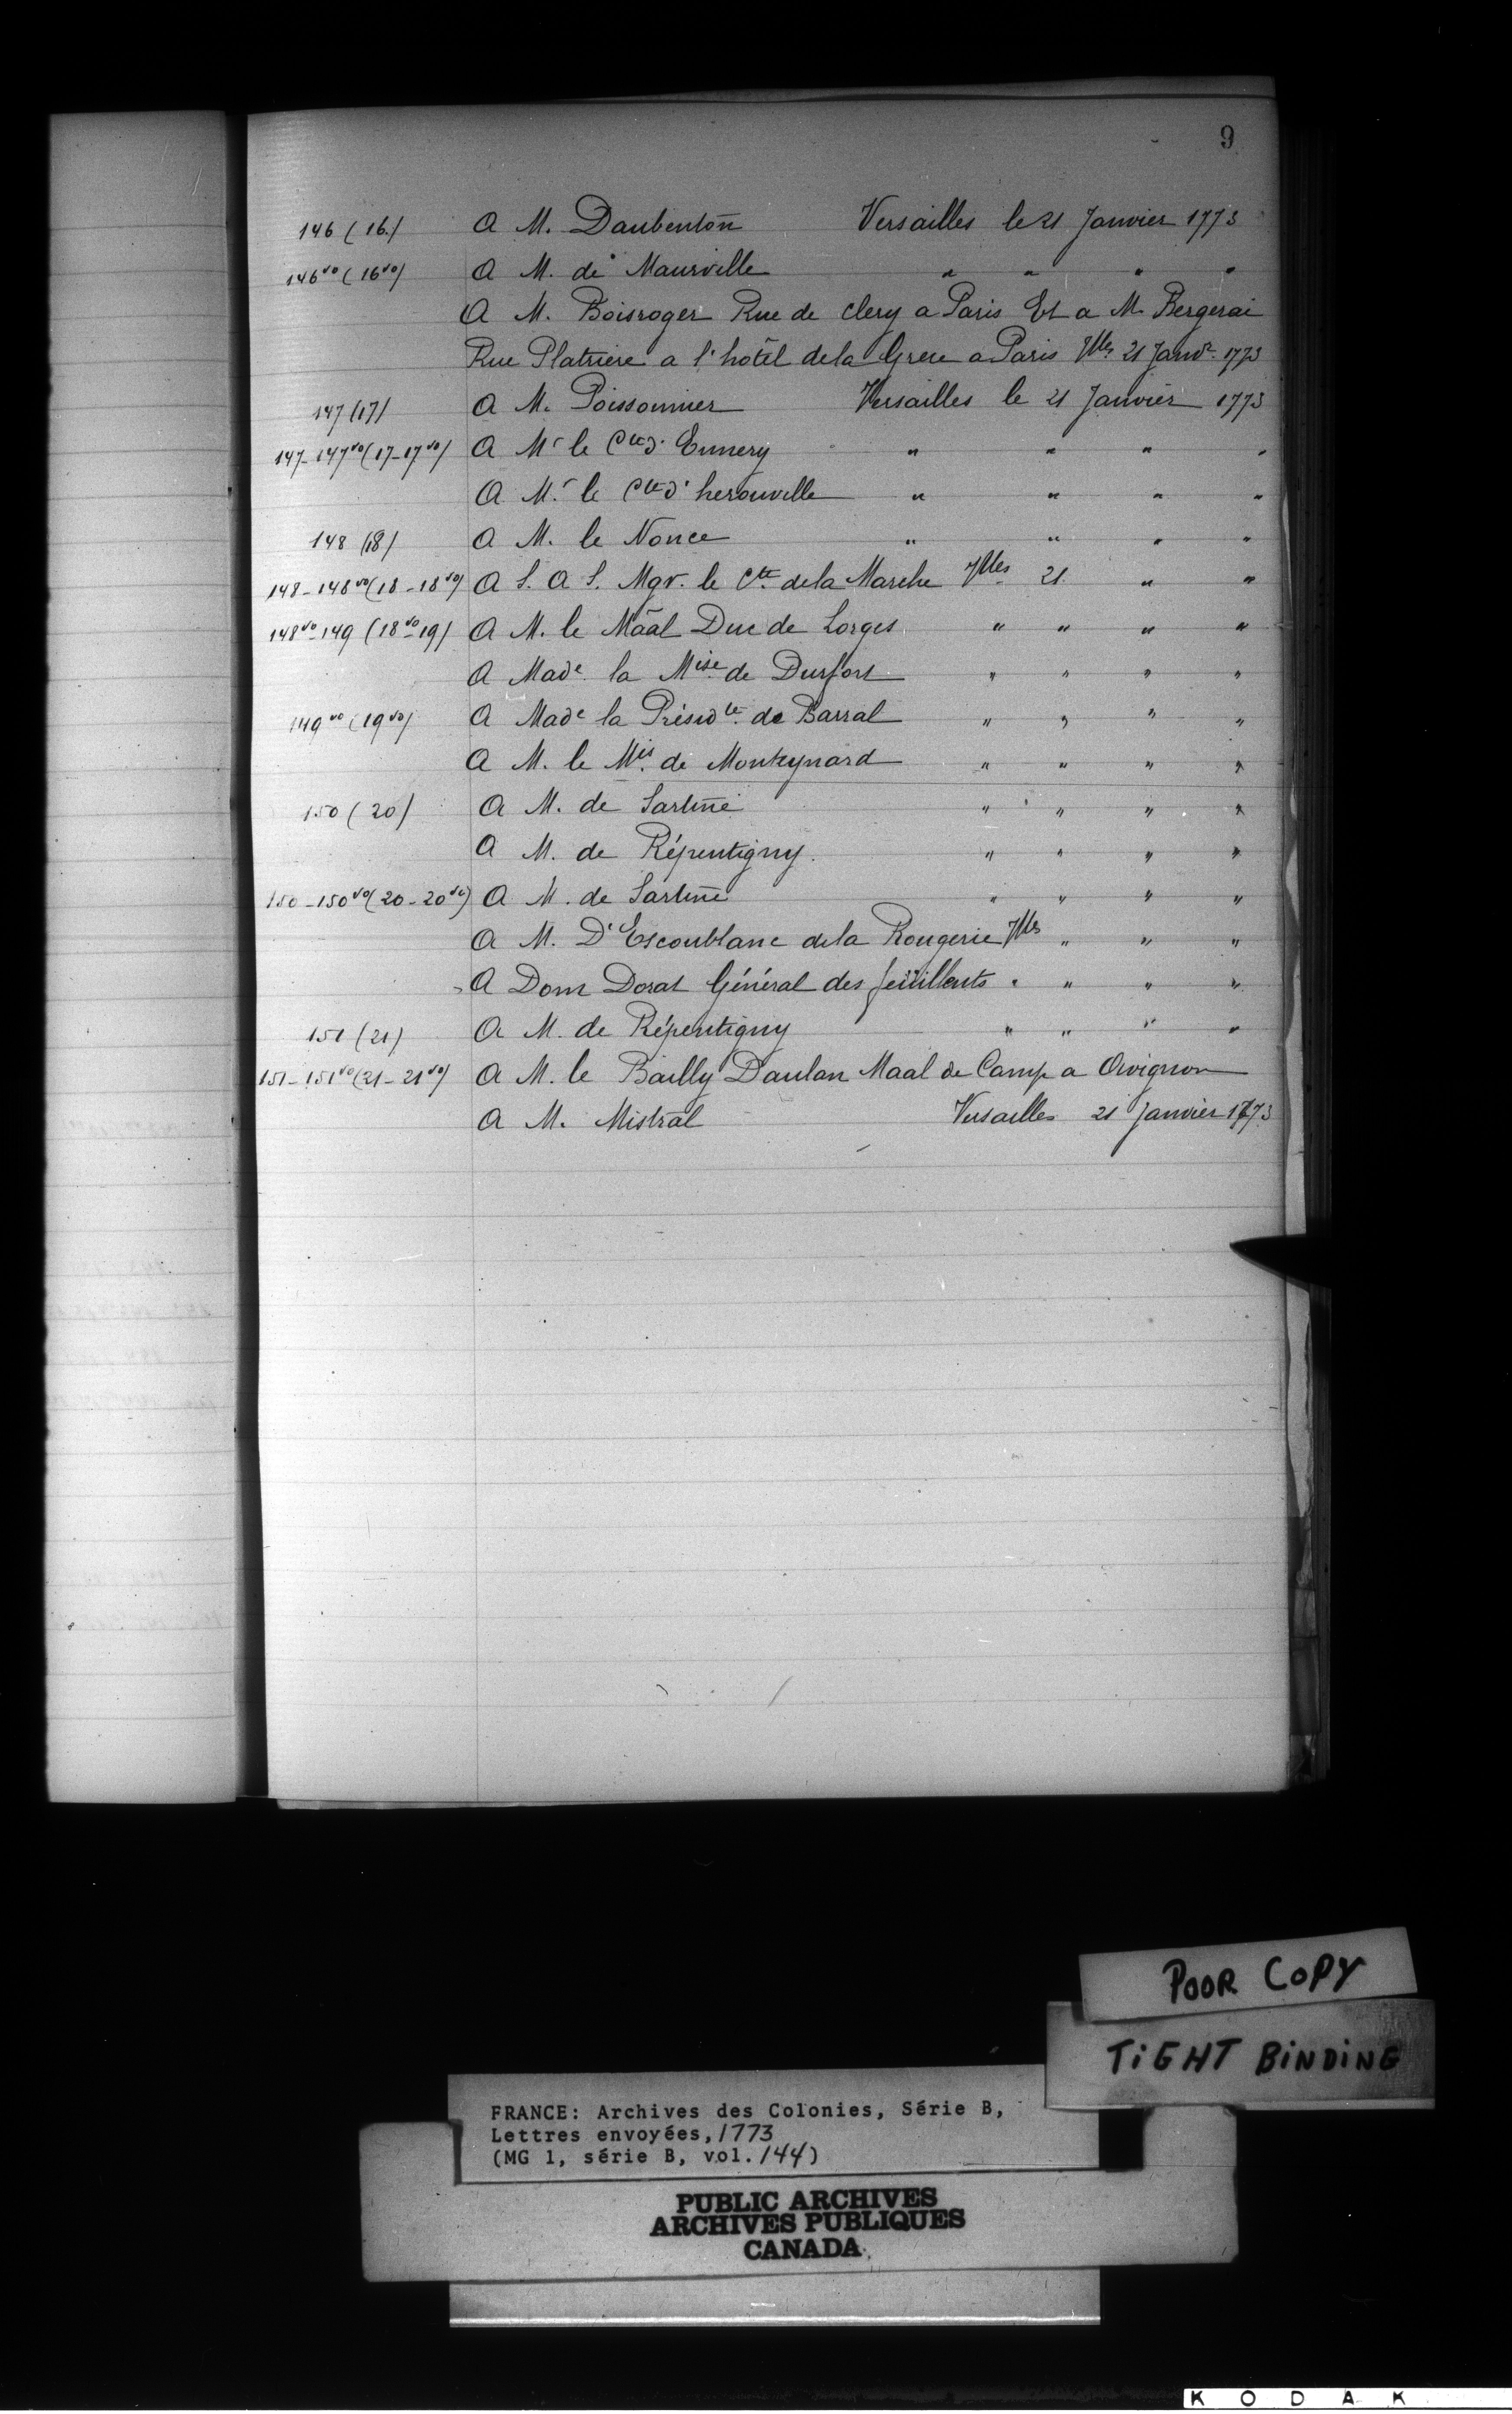 9
146 (16.) A M. Daubenton Versailles le 21 Janvier 1773
146vo (16vo) A M. de Maurville " " " "
A M. Boisroger Rue de clery a Paris Et a M. Bergerai
Rue Platriere a l'hotel dela Grece a Paris Vlles 21 Janvr. 1773
147 (17) A M. Poissonnier Versailles le 21 Janvier 1773
147-147vo (17-17vo) A Mr le Cte d'Ennery " " " "
A Mr. le Cte d'herouville " " " "
148 (18) A M. le Nonce " " " "
148-148vo (18-18vo) A S. A S. Mgr. le Cte dela Marche Vlles 21 " "
148vo-149 (18vo-19) A M. le Maal Duc de Lorges " " " "
A Made la Mise de Durfort " " " "
149vo (19vo) A Made la Présidte de Barral " " " "
A M. le Mis de Monteynard " " " "
150 (20) A M. de Sartine " " " "
A M. de Répentigny. " " " "
150-150vo (20-20vo) A M. de Sartine " " " "
A M. D'Escoublanc dela Rougerie Vlles " " "
A Dom Dorat Général des feüillents " " " "
151 (21) A M. de Répentigny " " " "
151-151vo (21-21vo) A M. le Bailly Daulan Maal de Camp a Avignon
A M. Mistral Versailles 21 Janvier 1773
POOR COPY
TIGHT BINDING
FRANCE: Archives des Colonies, Série B,
Lettres envoyées, 1773
(MG 1, série B, vol. 144)
PUBLIC ARCHIVES
ARCHIVES PUBLIQUES
CANADA
KODAK